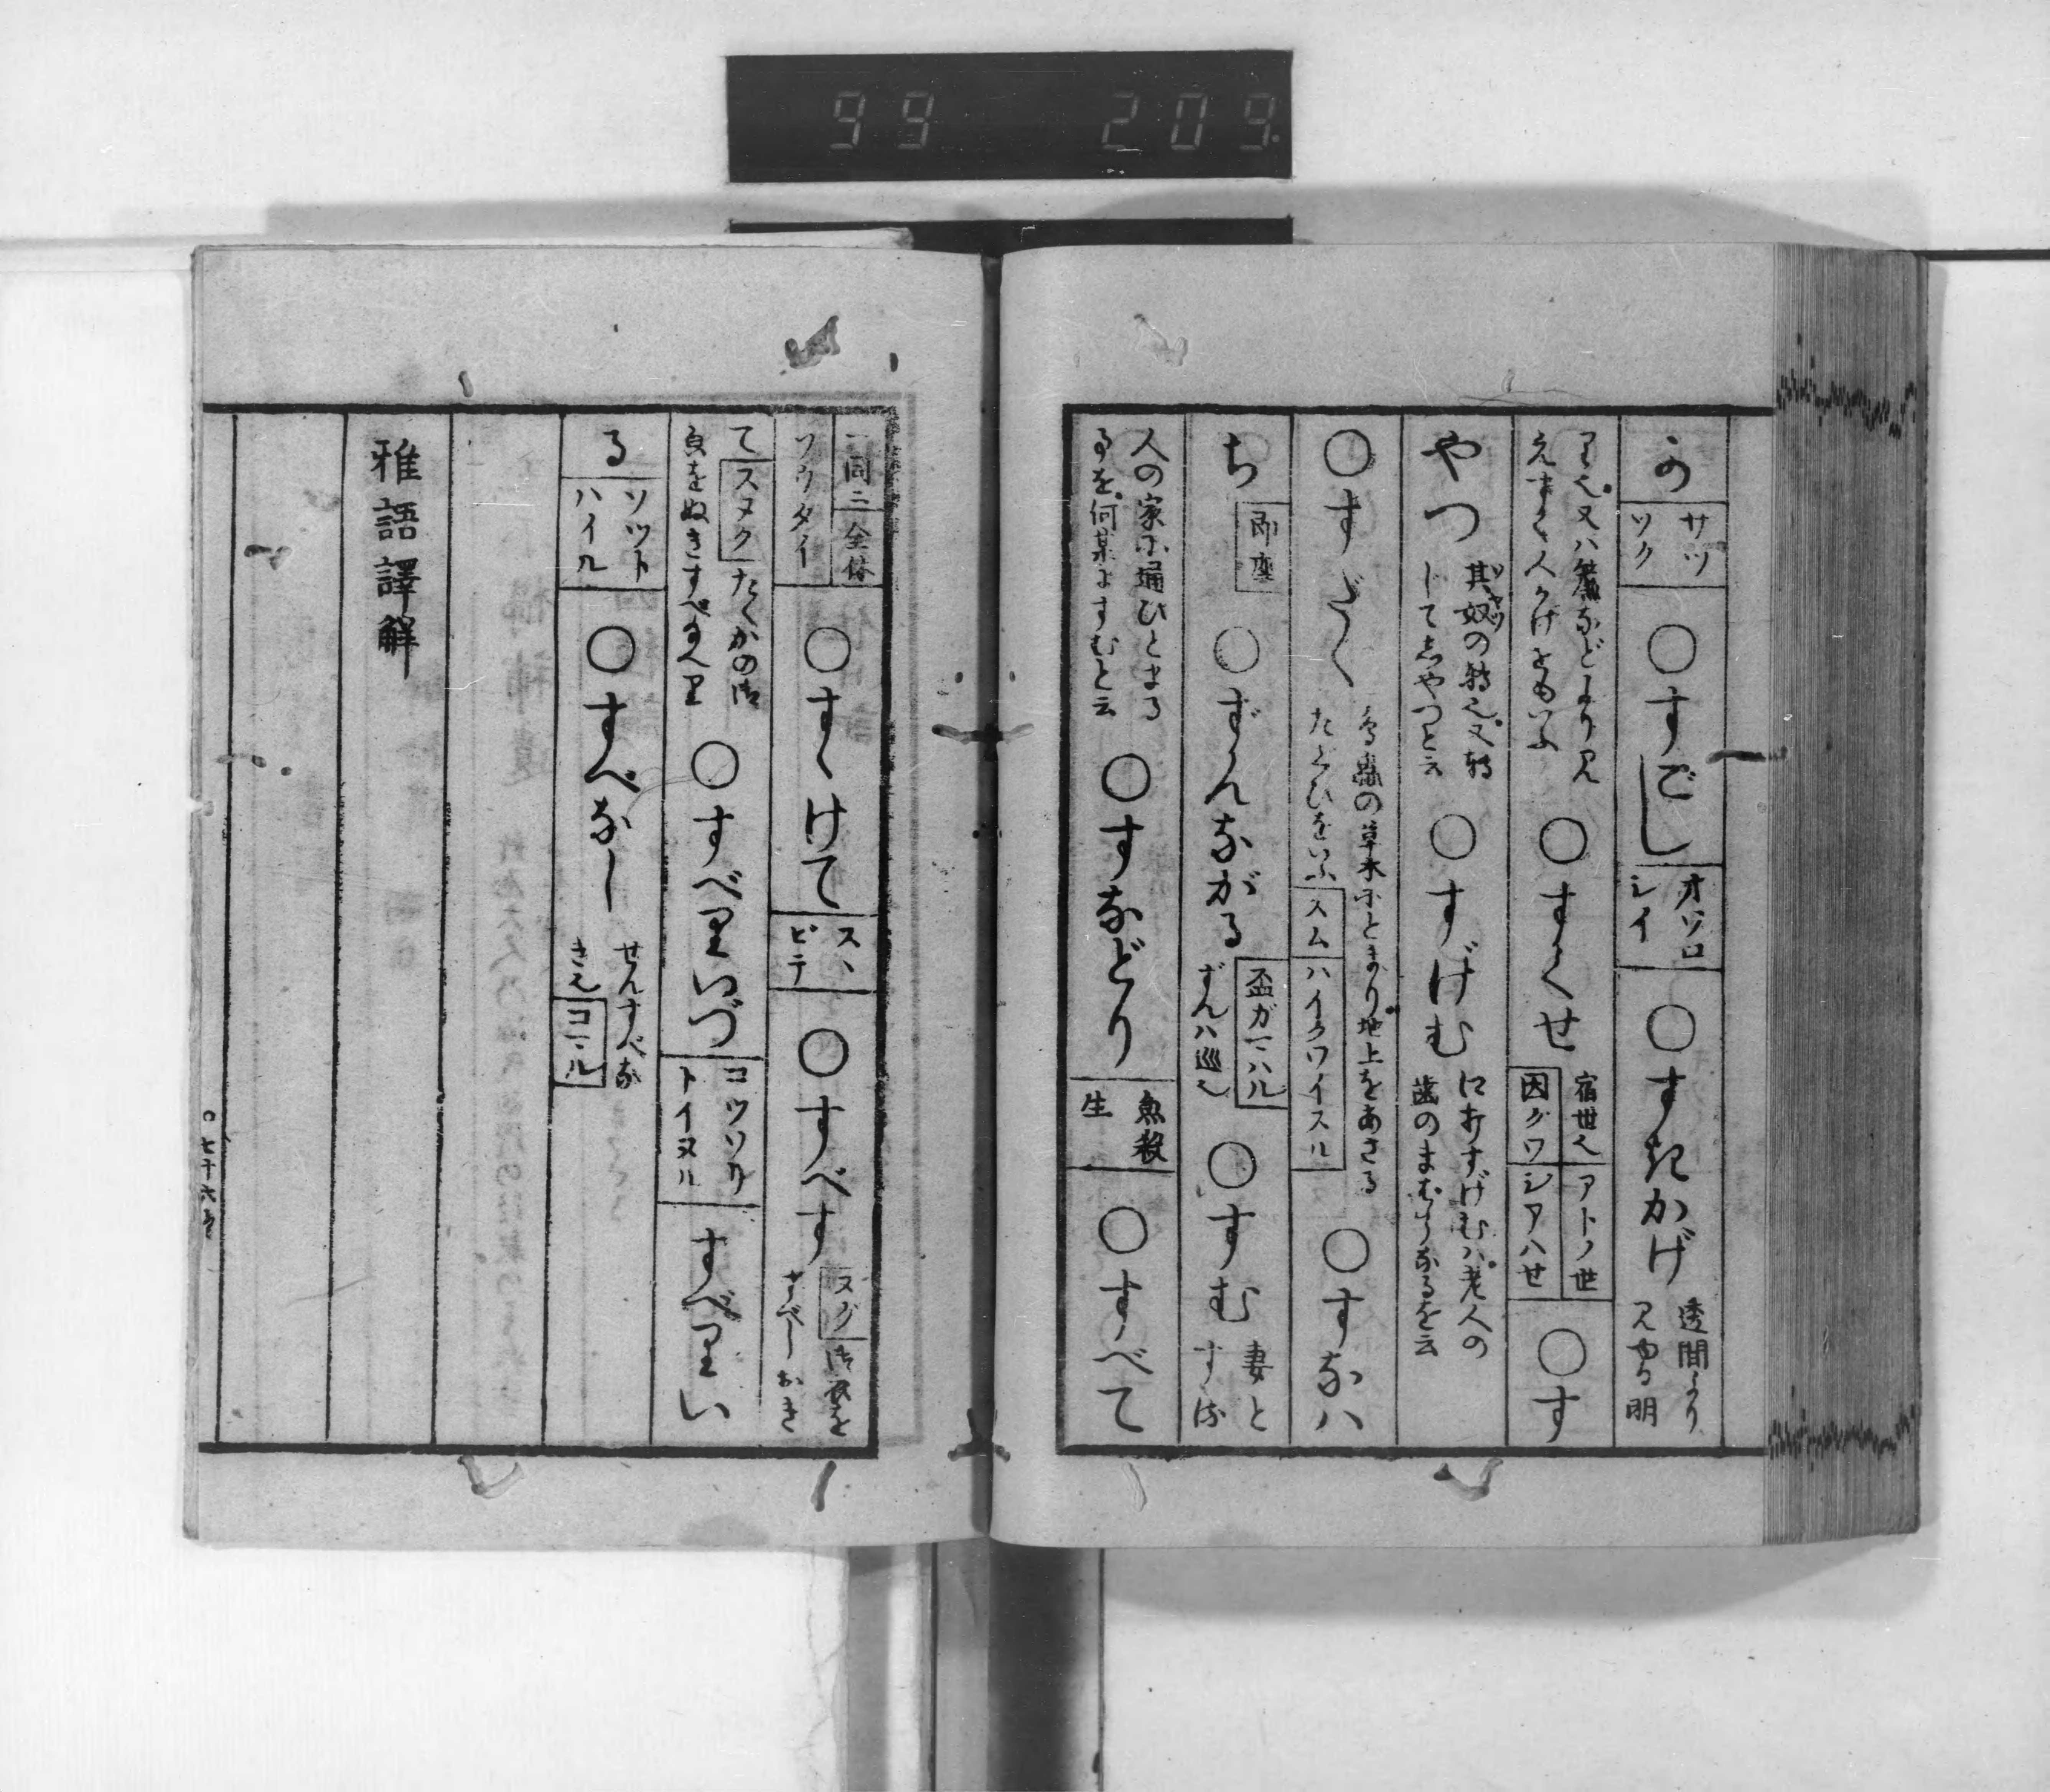 99 209
の サツソク ○すごし オソロシイ ○すきかげ 透間より見ゆる明
り也又ハ簾などより見えすく人かげをもいふ ○すくせ 宿世也 アトノ世 因グワ シアハせ ○す
やつ 其奴の転也又転じてしやつと云 ○すげむ 口おすげむハ老人の歯のまばらなるを云
○すだく 鳥虫の草木にとまり地上をあさるたぐひをいふ スム ハイクワイスル ○すなハ
ち 即座 ○ずんながる 盃ガマハル ずんハ巡也 ○すむ 妻とすむ
人の家に通ひとまるを何某にすむと云 ○すなどり 魚殺生 ○すべて
一同ニ 全体 ソウタイ ○すゝけて スヽビテ ○すべす ヌグ 御衣をすべしおき
て スヌク たくかの御魚をぬきすべし ○すべりいづ コツソリトイヌル すべりい
る ソツトハイル ○すべなし せんすべなき也 コマル
雅語譯解
○七十六